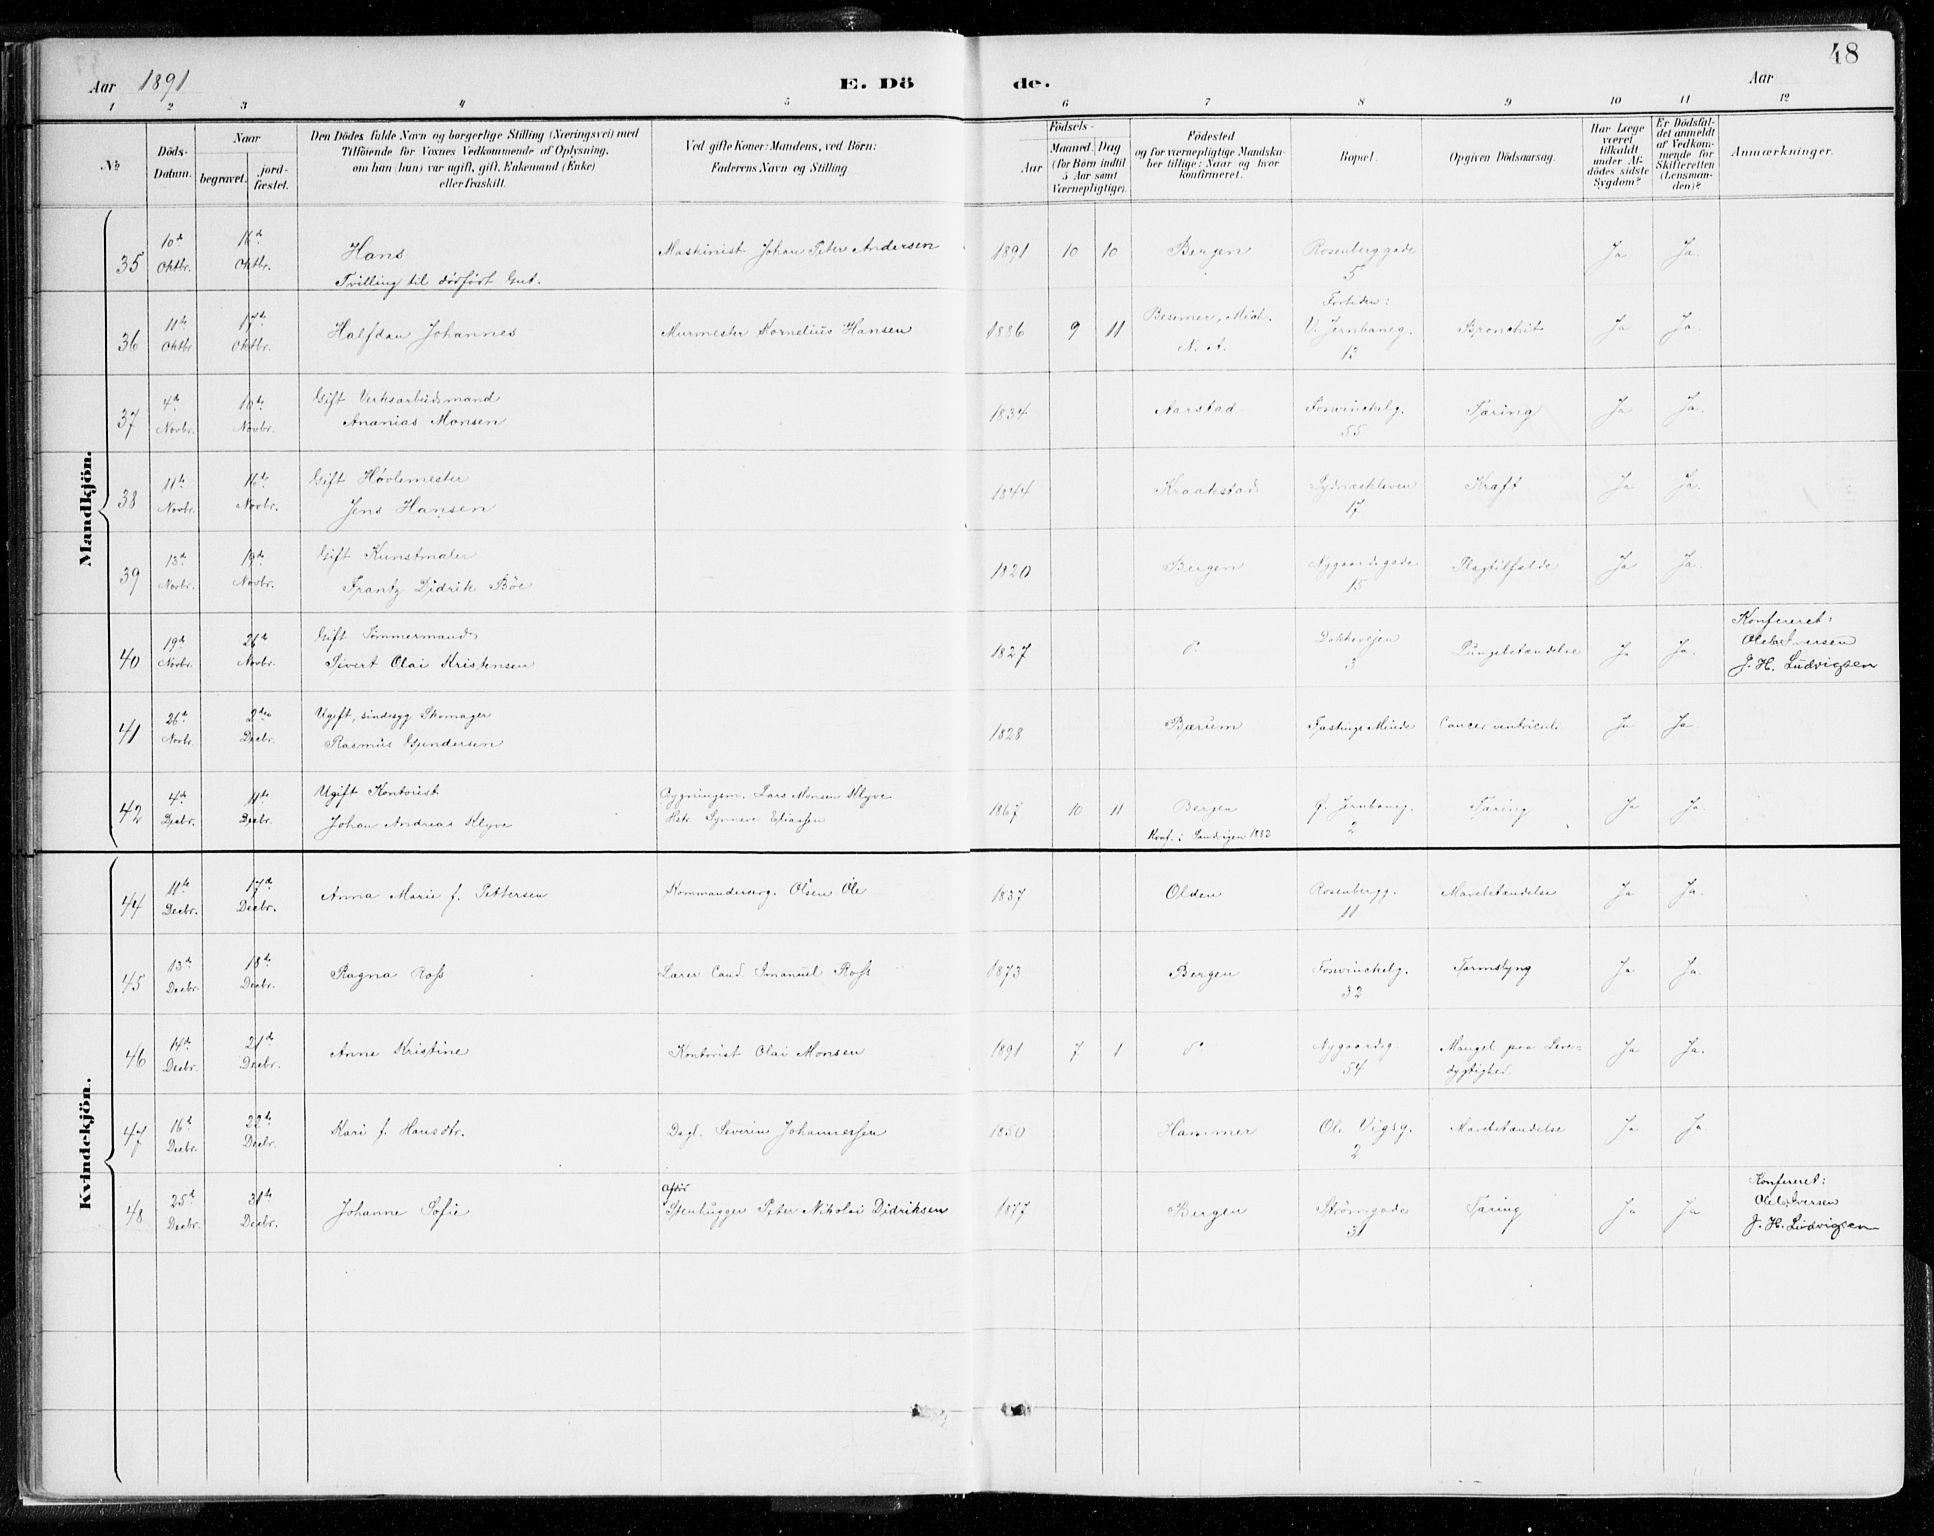 48
Aar 1891 E. Dö de. Aar
1 2 3 4 5 6 7 8 9 10 11 12
No.
Döds-
Datum.
Naar
begravet. jord-
fæstet.
Den Dödes fulde Navn og borgerlige Stilling (Næringsvei) med
Tilföiende for Voxnes Vedkommende af Oplysning,
om han (hun) var ugift, gift, Enkemand (Enke)
eller fraskilt.
Ved gifte Koner: Mandens, ved Börn:
Faderens Navn og Stilling.
Födsels-
Aar
Maaned. Dag
(for Börn indtil
5 Aar samt
Værnepligtige).
Födested
og for værnepligtige Mandska-
ber tillige: Naar og hvor
konfirmeret.
Bopæl.
Opgiven Dödsaarsag.
Har Læge
været
tilkaldt
under Af-
dödes sidste
Sygdom?
Er Dödsfal-
det anmeldt
af Vedkom-
mende for
Skifteretten
(Lensman-
den)?
Anmærkninger.
Mandkjön.
35 10de Oktbr. 16de Oktbr. Hans Maskinist Johan Peter Andersen 1891 10 10 Bergen Rosenberggade 5 Ja Ja.
Tvilling til dödfödt Gut.
36 11te Oktbr. 17de Oktbr. Halfdan Johannes Murmester Kornelius Hansen 1886 9 11 Besemer, Mich. N. A. Fortiden: V. Jernbaneg. 13 Bronchit Ja Ja.
37 4de Novbr. 10de Novbr. Gift Verksarbeidsmand
Ananias Monsen 1834 Aarstad Fosvinckelg. 55 Tæring Ja Ja.
38 11te Novbr. 16de Novbr. Gift Høvlemester
Jens Hansen 1844 Kraakstad Sydnæskleven 17 Kræft Ja Ja.
39 13de Novbr. 19de Novbr. Gift Kunstmaler
Frantz Didrik Böe 1820 Bergen Nygaardsgade 15 Slagtilfælde Ja Ja.
40 19de Novbr. 26de Novbr. Gift Tömmermand
Sivert Olai Kristensen 1827 do. Dokkevejen 3 Lungebetændelse Ja Ja. Konfereret:
Oleb. Iversen
J. H. Ludvigsen
41 26de Novbr. 2den Decbr. Ugift, sindssyg Skomager
Rasmus Gundersen 1828 Bærum Fastings Minde Cancer ventriculi Ja Ja
42 4de Decbr. 11te Decbr. Ugift Kontorist
Johan Andreas Klyve Bygningsm. Lars Monsen Klyve
Hstr. Synneve Eliassen 1867 10 11 Bergen
Konf. i Sandvigen 1882 Ø. Jernbaneg. 2 Tæring Ja Ja.
Kvindekjön.
44 11te Decbr. 17de Decbr. Anna Marie f. Pettersen Kommandersrg. Olsen Ole 1837 Olden Rosenbergg. 11 Mavebetændelse Ja Ja.
45 13de Decbr. 18de Decbr. Ragna Ross Lærer Cand. Imanuel Ross 1873 Bergen Fosvinckelg. 32 Tarmslyng Ja Ja.
46 14de Decbr. 21de Decbr. Anne Kristine Kontorist Olai Monsen 1891 7 1 do. Nygaardsg. 54 Mangel paa Leve-
dygtighed. Ja Ja.
47 16de Decbr. 22de Decbr. Kari f. Hansdtr. Dagl. Severin Johannessen 1850 Hammer Ole Vigsg. 2 Mavebetændelse Ja Ja
48 25de Decbr. 31te Decbr. Johanne Sofie afdöd
Stenhugger Peter Nikolai Didriksen 1877 Bergen Strömgade 31 Tæring Ja Ja Konfereret:
Oleb. Iversen
J. H. Ludvigsen